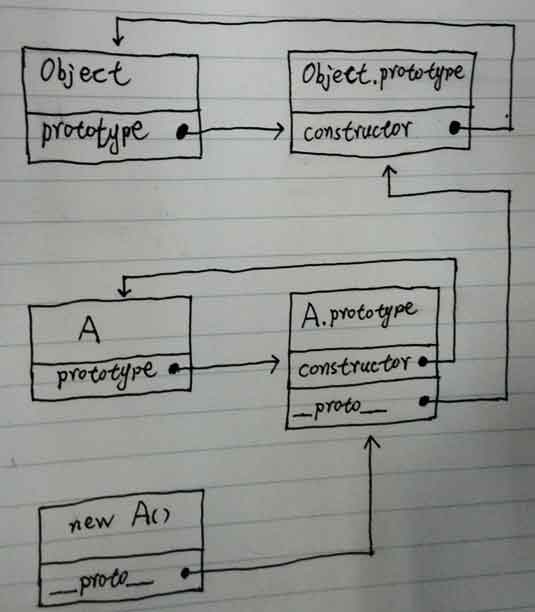 Object
prototype
Object.prototype
constructor
A
prototype
A.prototype
constructor
__proto__
new A()
__proto__